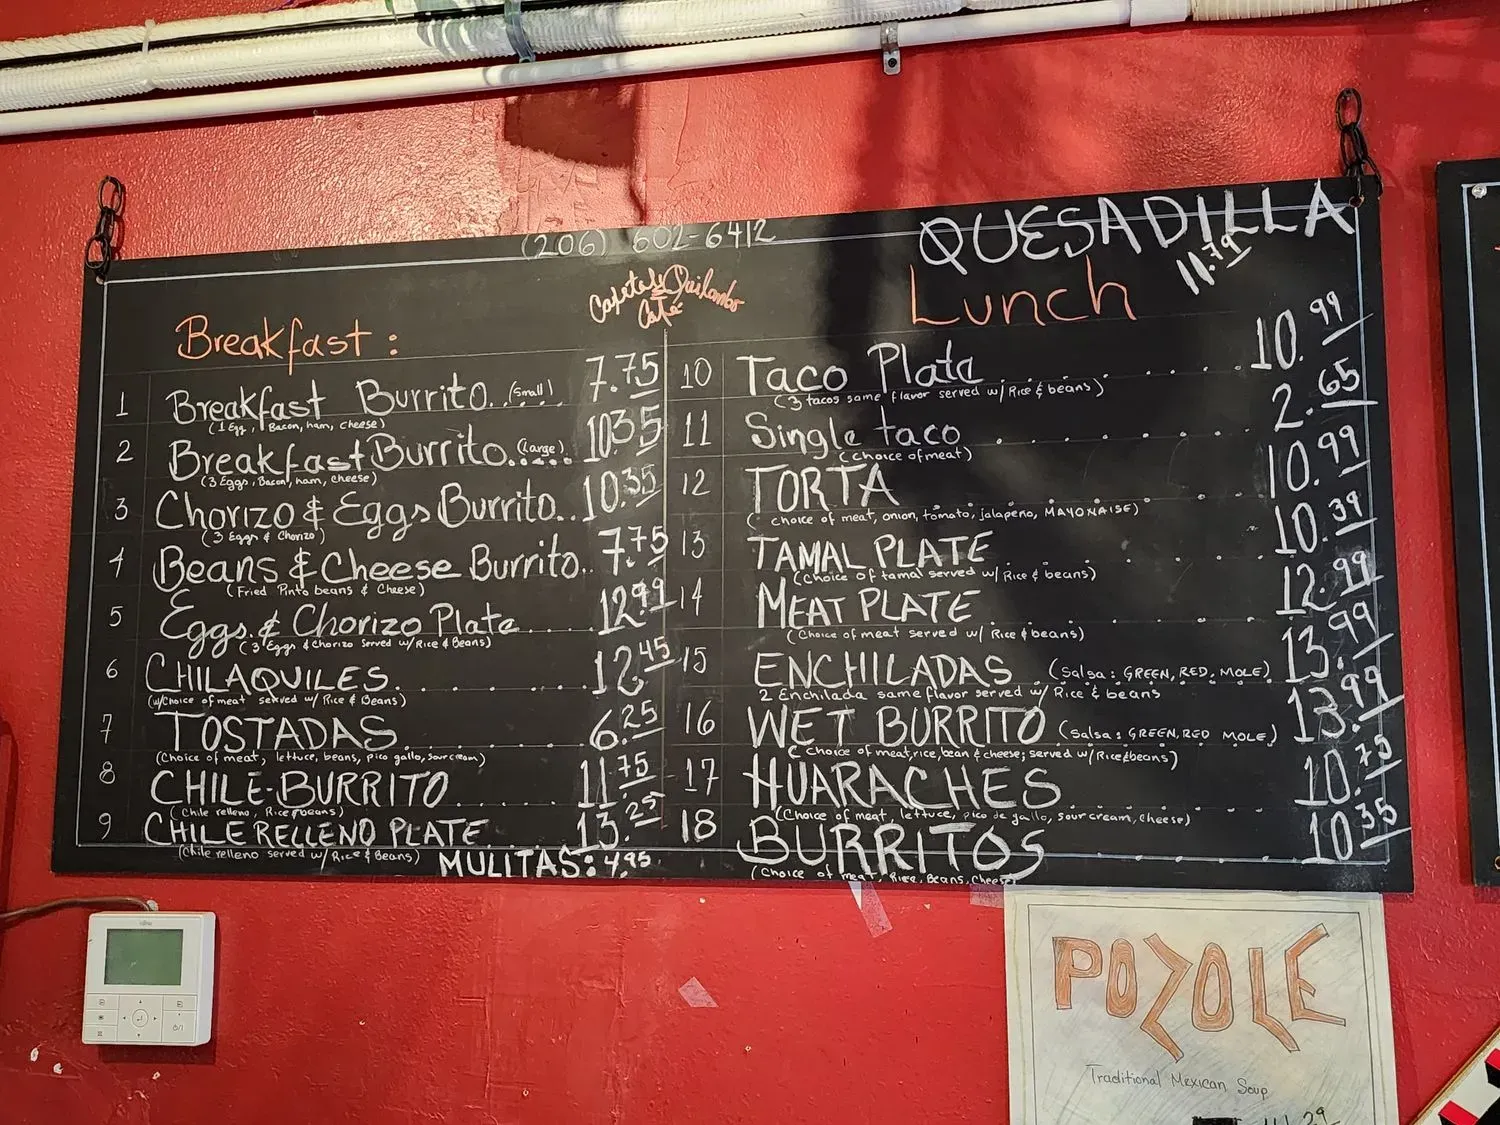 (206) 602-6412
QUESADILLA
11.79
Capitol Quilombo
Café
Breakfast:
1 Breakfast Burrito.. (Small) 7.75
(1 Egg, Bacon, ham, cheese)
2 Breakfast Burrito..... (Large) 10.35
(3 Eggs, Bacon, ham, cheese)
3 Chorizo & Eggs Burrito.. 10.35
(3 Eggs & Chorizo)
4 Beans & Cheese Burrito.. 7.75
(Fried Pinto beans & Cheese)
5 Eggs & Chorizo Plate 12.99
(3 Eggs & Chorizo Served w/Rice & Beans)
6 CHILAQUILES 12.45
(w/Choice of meat served w/ Rice & Beans)
7 TOSTADAS 6.25
(Choice of meat, lettuce, beans, pico gallo, sour cream)
8 CHILE-BURRITO 11.75
(Chile relleno, Rice & beans)
9 CHILE RELLENO PLATE 13.25
(Chile relleno served w/ Rice & Beans)
MULITAS: 4.95
Lunch
10 Taco Plate 10.99
(3 tacos same flavor served w/ Rice & beans)
11 Single taco 2.65
(choice of meat)
12 TORTA 10.99
(choice of meat, onion, tomato, jalapeño, MAYONAISE)
13 TAMAL PLATE 10.39
(Choice of tamal served w/ Rice & beans)
14 MEAT PLATE 12.99
(Choice of meat served w/ Rice & beans)
15 ENCHILADAS (Salsa: GREEN, RED, MOLE) 13.99
2 Enchilada same flavor served w/ Rice & beans
16 WET BURRITO (Salsa: GREEN, RED MOLE) 13.99
(Choice of meat, rice, bean & cheese; served w/Rice & beans)
17 HUARACHES 10.75
(Choice of meat, lettuce, pico de gallo, sour cream, cheese)
18 BURRITOS 10.35
(Choice of meat, Rice, Beans, Cheese)
POZOLE
Traditional Mexican Soup